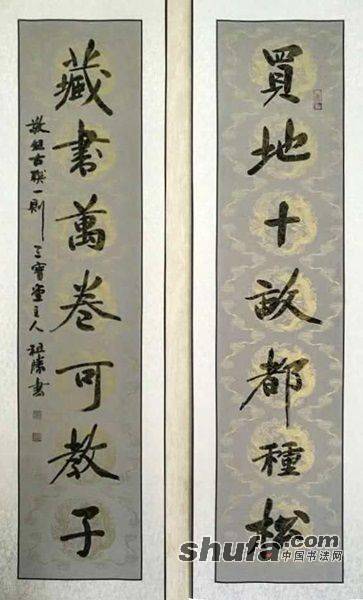 買地十畝都種松
藏書萬卷可教子
古聯一則 寶堂主人 祖 書
shufa.com
中国书法网